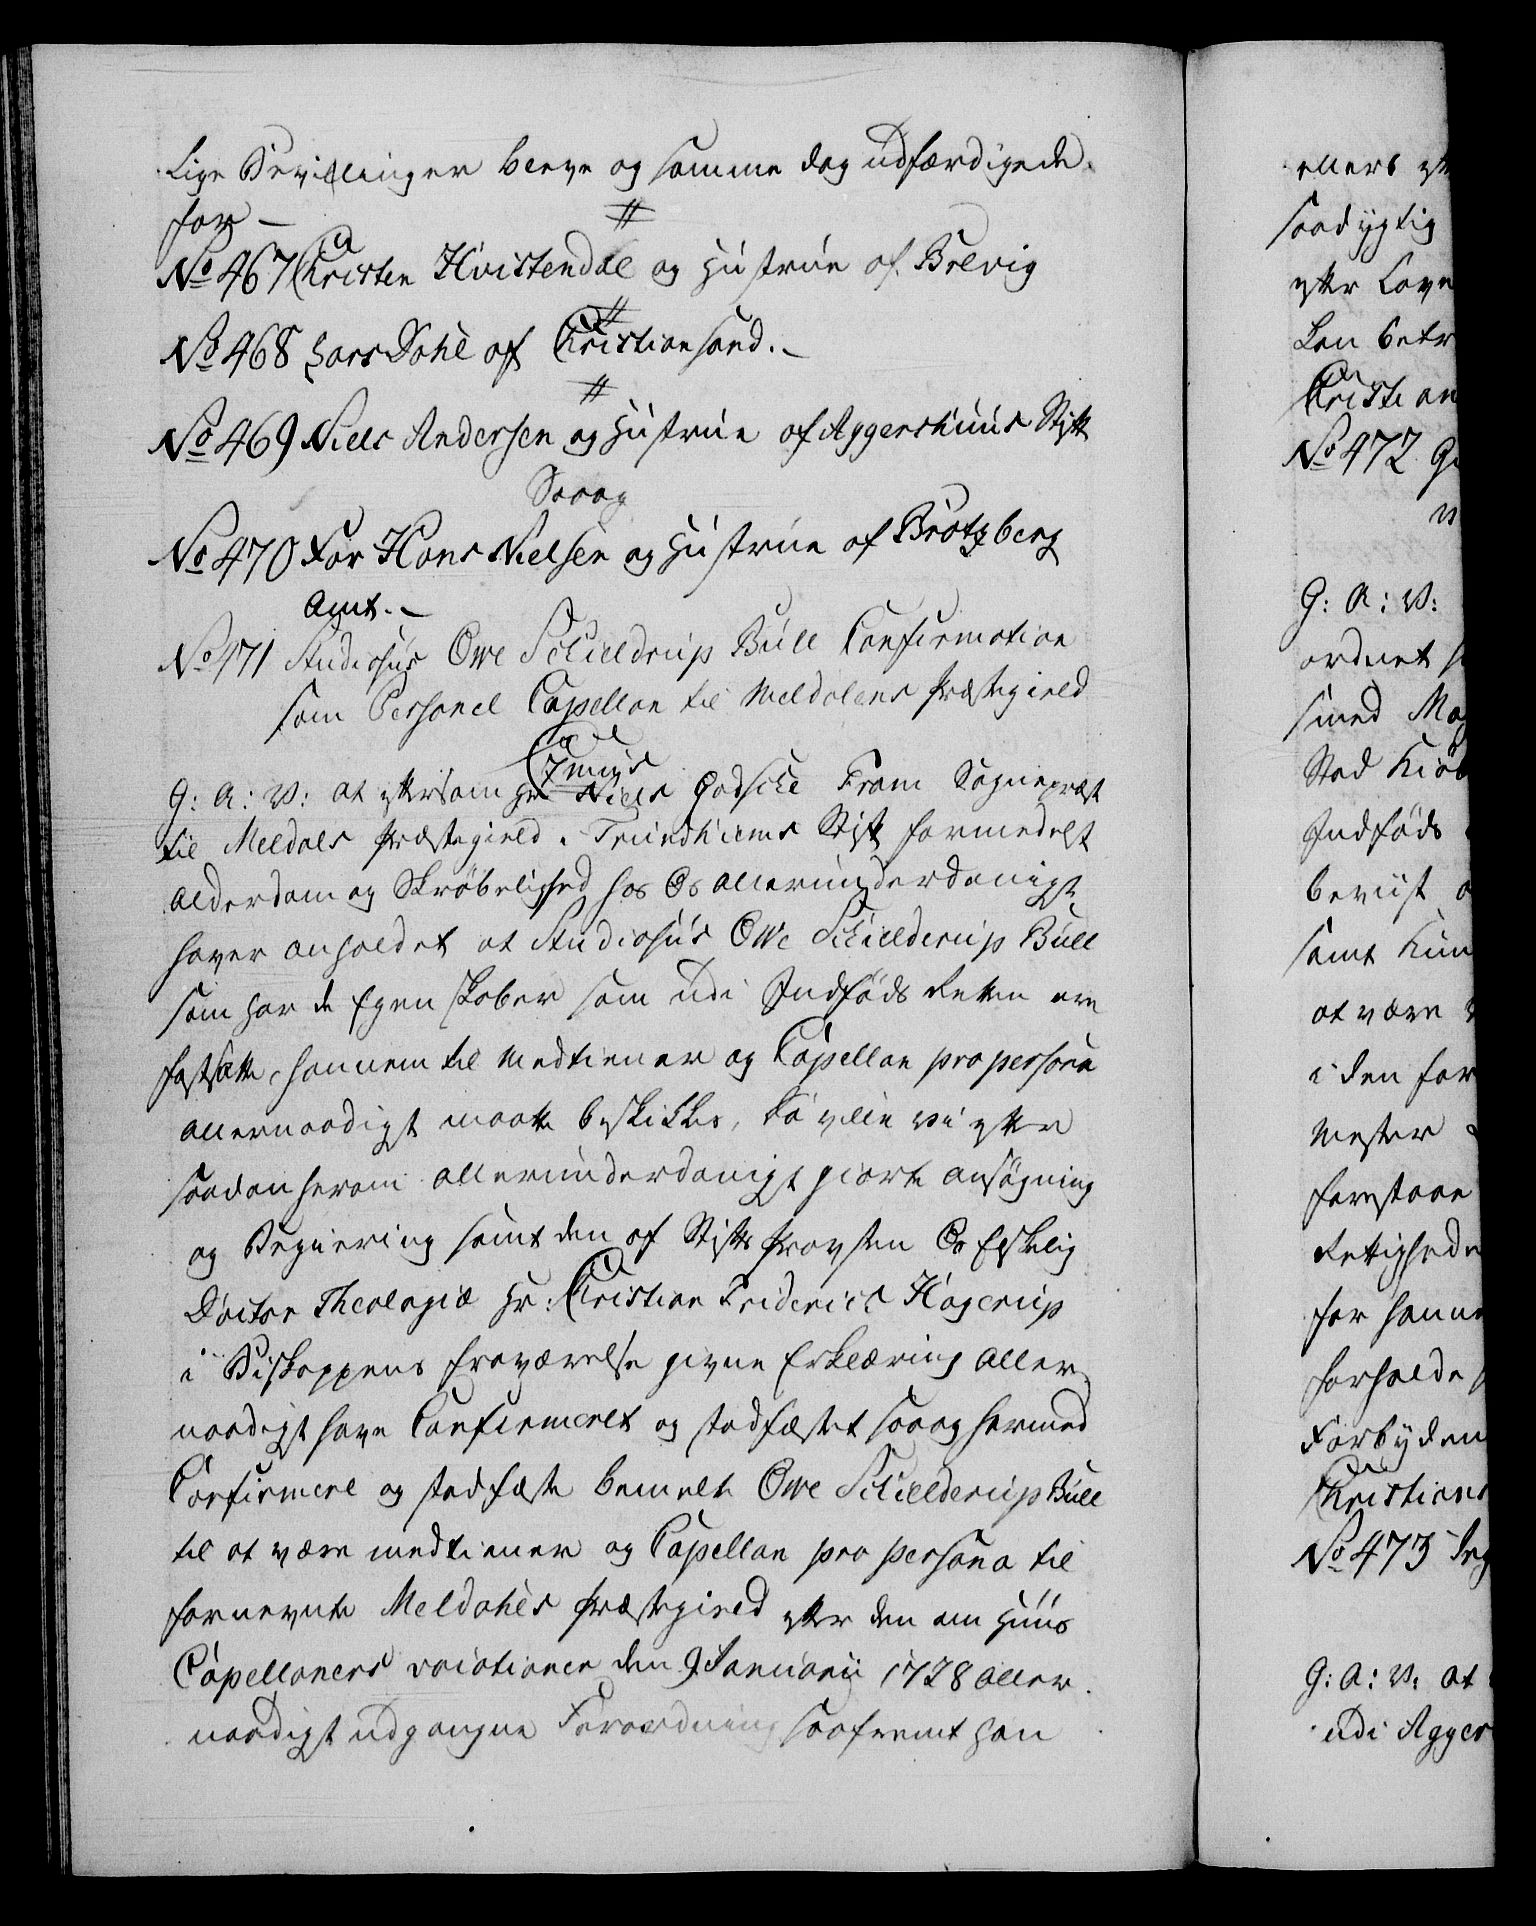 Lige Bevillinger bleve og samme dag udfærdigede
for -
No 467 Christen Hvistendal og Hustrue af Brevig
No 468 Lars Dohl af Christiansand. -
No 469 Niels Andersen og Hustrue af Aggershuus Stift
Saaog
No 470 For Hans Nielsen og Hustrue af Bratzberg
Amt. -
No 471 Studiosus Owe Schielderup Bull Confirmation
som Personel Capellan til Meldalens Præstegield
G: A: V: at eftersom Hr Niels Godsche Fram Sognepræst
til Meldals Præstegield i Trundhiems Stift formedelst
Alderdom og Skrøbelighed hos Os allerunderdanigst
haver anholdet at Studiosus Owe Schielderup Bull
som har de Egenskaber som udi Indføds Retten ere
fastsatte, hannem til Medtiener og Capellan pro persona
allernaadigst maatte beskikkes, Da ville vi efter
saadan herom allerunderdanigst giorte ansøgning
og Begiering samt den af Stifts Provsten Os Elskelig
Doctor Theologiæ Hr: Christian Friderich Hagerup
i Biskoppens fraværelse givne Erklæring aller-
naadigst have Confirmeret og stadfæstet saaog hermed
Confirmere og stadfæste bemelte Owe Schielderup Bull
til at være medtiener og Capellan pro persona til
fornevnte Meldahls Præstegield efter den om Huus
Capellaners vocationer den 9 Januarii 1728 aller-
naadigst udgangne Forordning saafremt han
ellers
saadygtig
efter Lov
Christian
No 472
G: A: V:
ordnet
smed
Stad Kiøb
Indføds
beviist
samt
at være
i den for
Mester
forestaae
Rettighede
for hanne
forholde
Forbyden
Christians
No 473
G: A: V: at
udi Agger